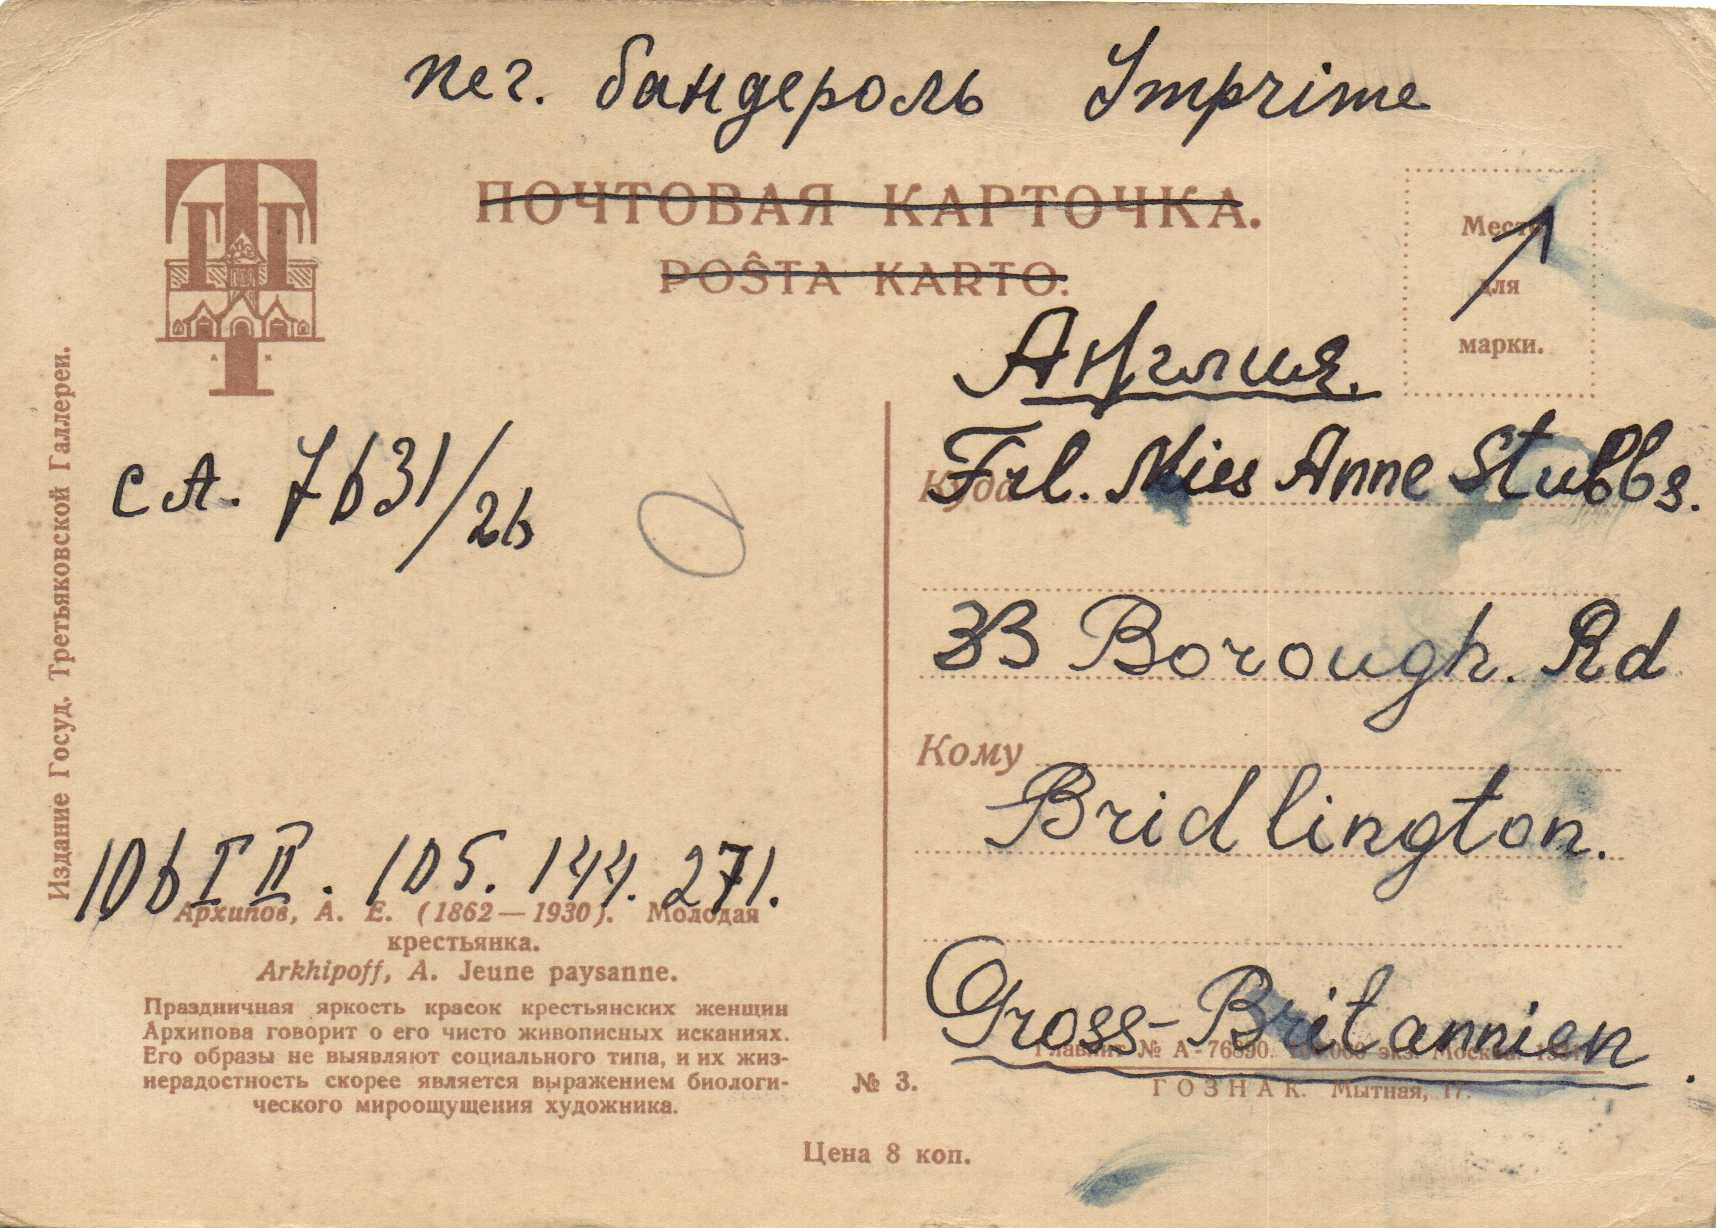 печ. бандероль Imprime
ПОЧТОВАЯ КАРТОЧКА.
POŜTA KARTO.
Место
для
марки.
Англия.
Куда
Frl. Mies Anne Stubbs.
33 Borough. Rd
Кому
Bridlington.
Gross-Britannien.
Главлит № А-76890. экз. Москва
ГОЗНАК. Мытная, 17.
ТГГ
Издание Госуд. Третьяковской Галлереи.
с А. 7631/26
106 I II. 105. 144. 271.
Архипов, А. Е. (1862—1930). Молодая
крестьянка.
Arkhipoff, A. Jeune paysanne.
Праздничная яркость красок крестьянских женщин
Архипова говорит о его чисто живописных исканиях.
Его образы не выявляют социального типа, и их жиз-
нерадостность скорее является выражением биологи-
ческого мироощущения художника.
№ 3.
Цена 8 коп.